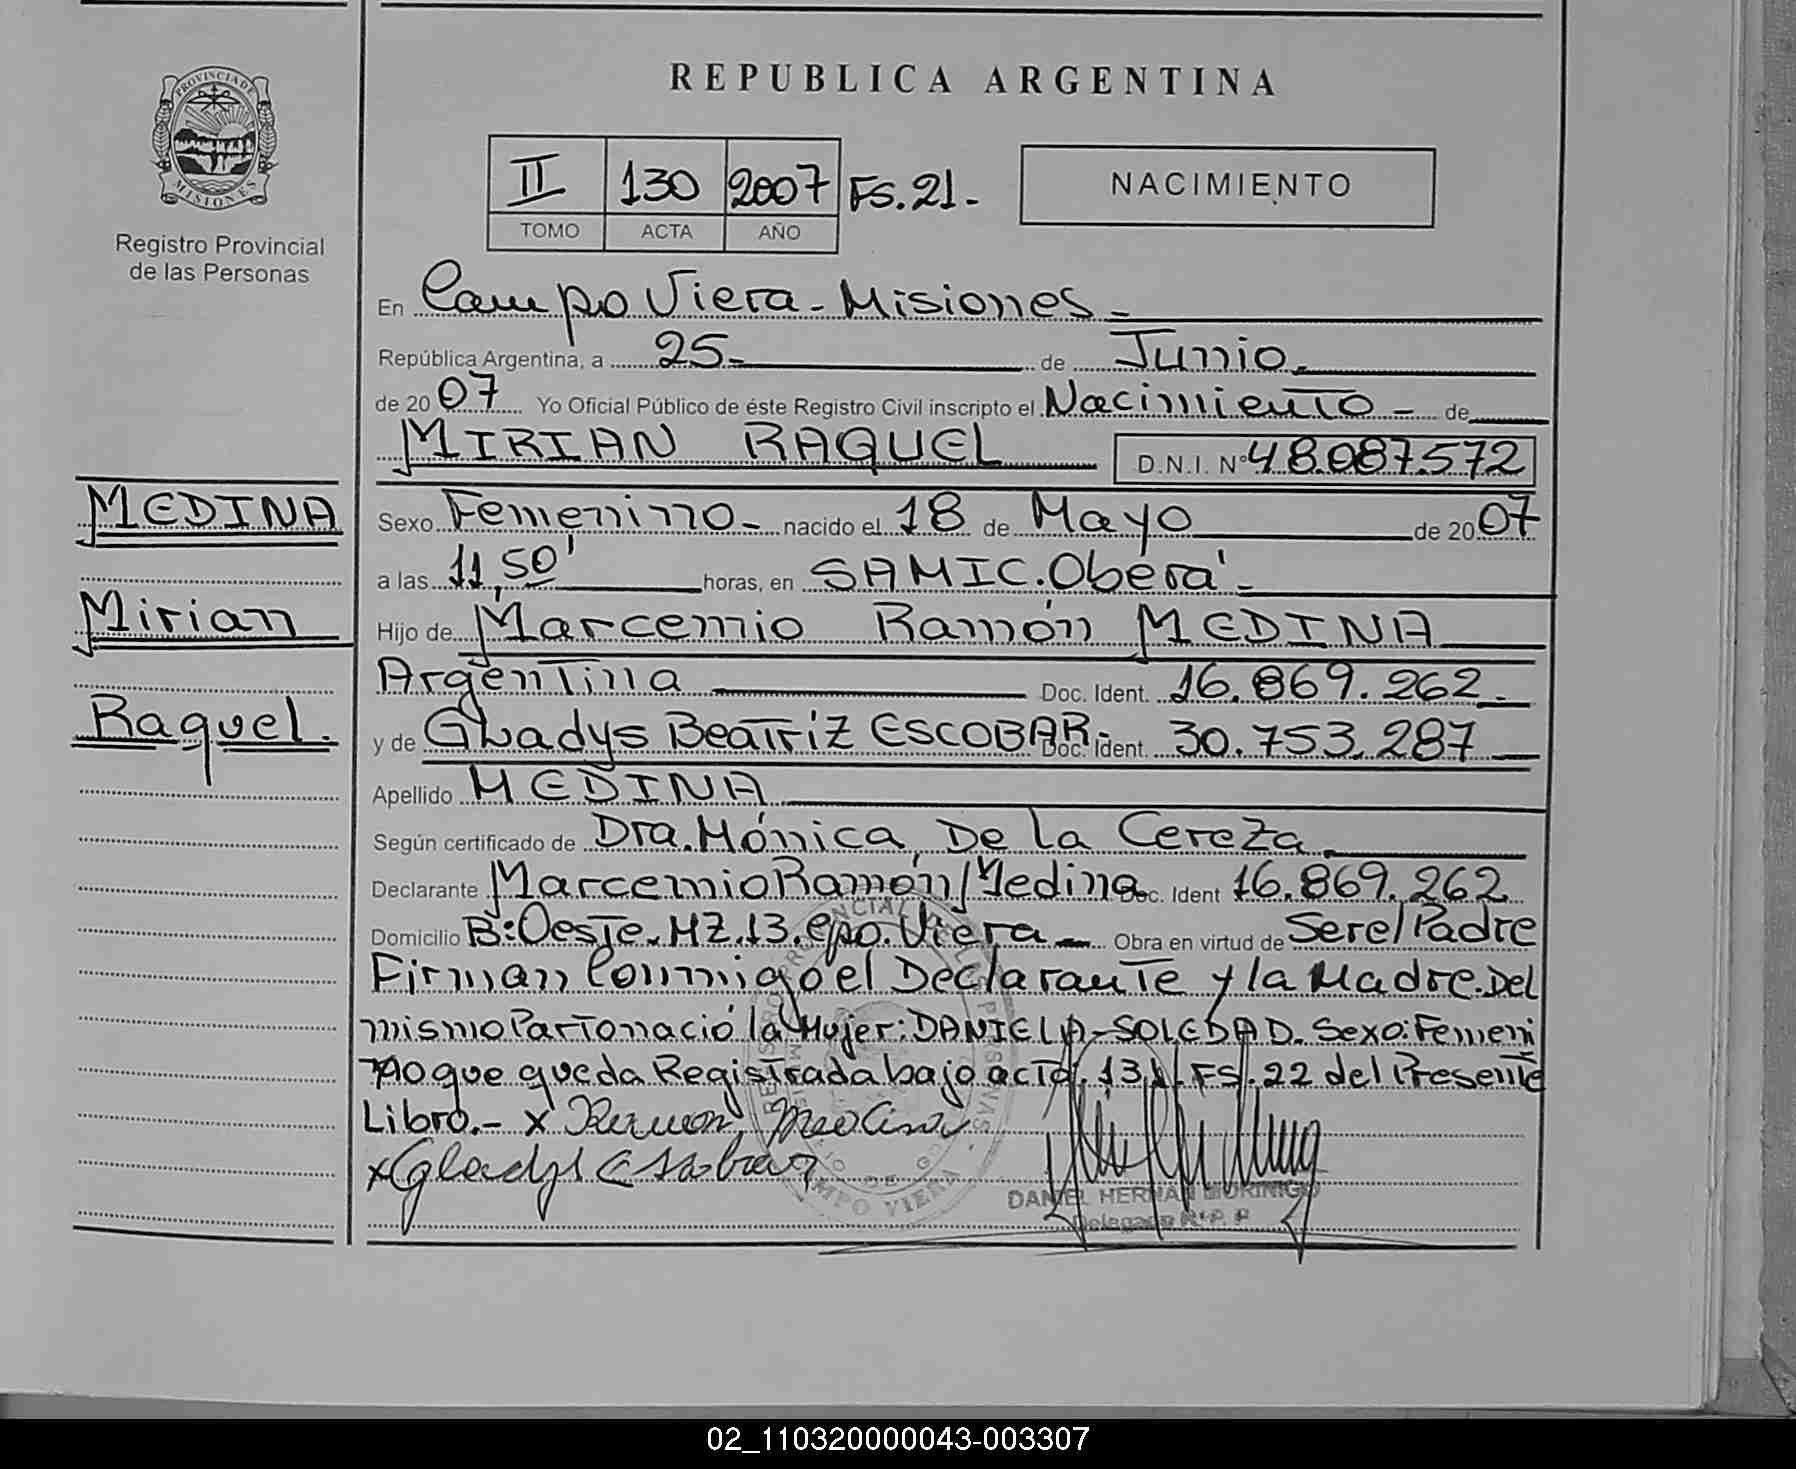 REPUBLICA ARGENTINA
PROVINCIA DE MISIONES
Registro Provincial
de las Personas
II 130 2007 FS. 21.-
TOMO ACTA AÑO
NACIMIENTO
En Campo Viera - Misiones -
República Argentina, a 25- de Junio.
de 20 07 Yo Oficial Público de éste Registro Civil inscripto el Nacimiento - de
MIRIAN RAQUEL D.N.I. Nº 48.087.572
MEDINA
Mirian
Raquel.
Sexo Femenino - nacido el 18 de Mayo de 20 07
a las 11,50' horas, en SAMIC. Oberá -
Hijo de Marcemio Ramón MEDINA
Argentina Doc. Ident. 16.869.262.-
y de Gladys Beatriz ESCOBAR.- Doc. Ident. 30.753.287
Apellido MEDINA
Según certificado de Dra. Mónica De la Cereza.
Declarante Marcemio Ramón Medina Doc. Ident 16.869.262
Domicilio B: Oeste. MZ. 13. Cpo. Viera - Obra en virtud de Ser el Padre
Firman Conmigo el Declarante y la Madre. Del
mismo Parto nació la Mujer: DANIELA - SOLEDAD. Sexo: Femeni
no que queda Registrada bajo acta. 131. FS. 22 del Presente
Libro.- x Ramon Medina
x Gladys Escobar
DANIEL HERNAN MORINIGO
Delegado R. P. P.
02_110320000043-003307